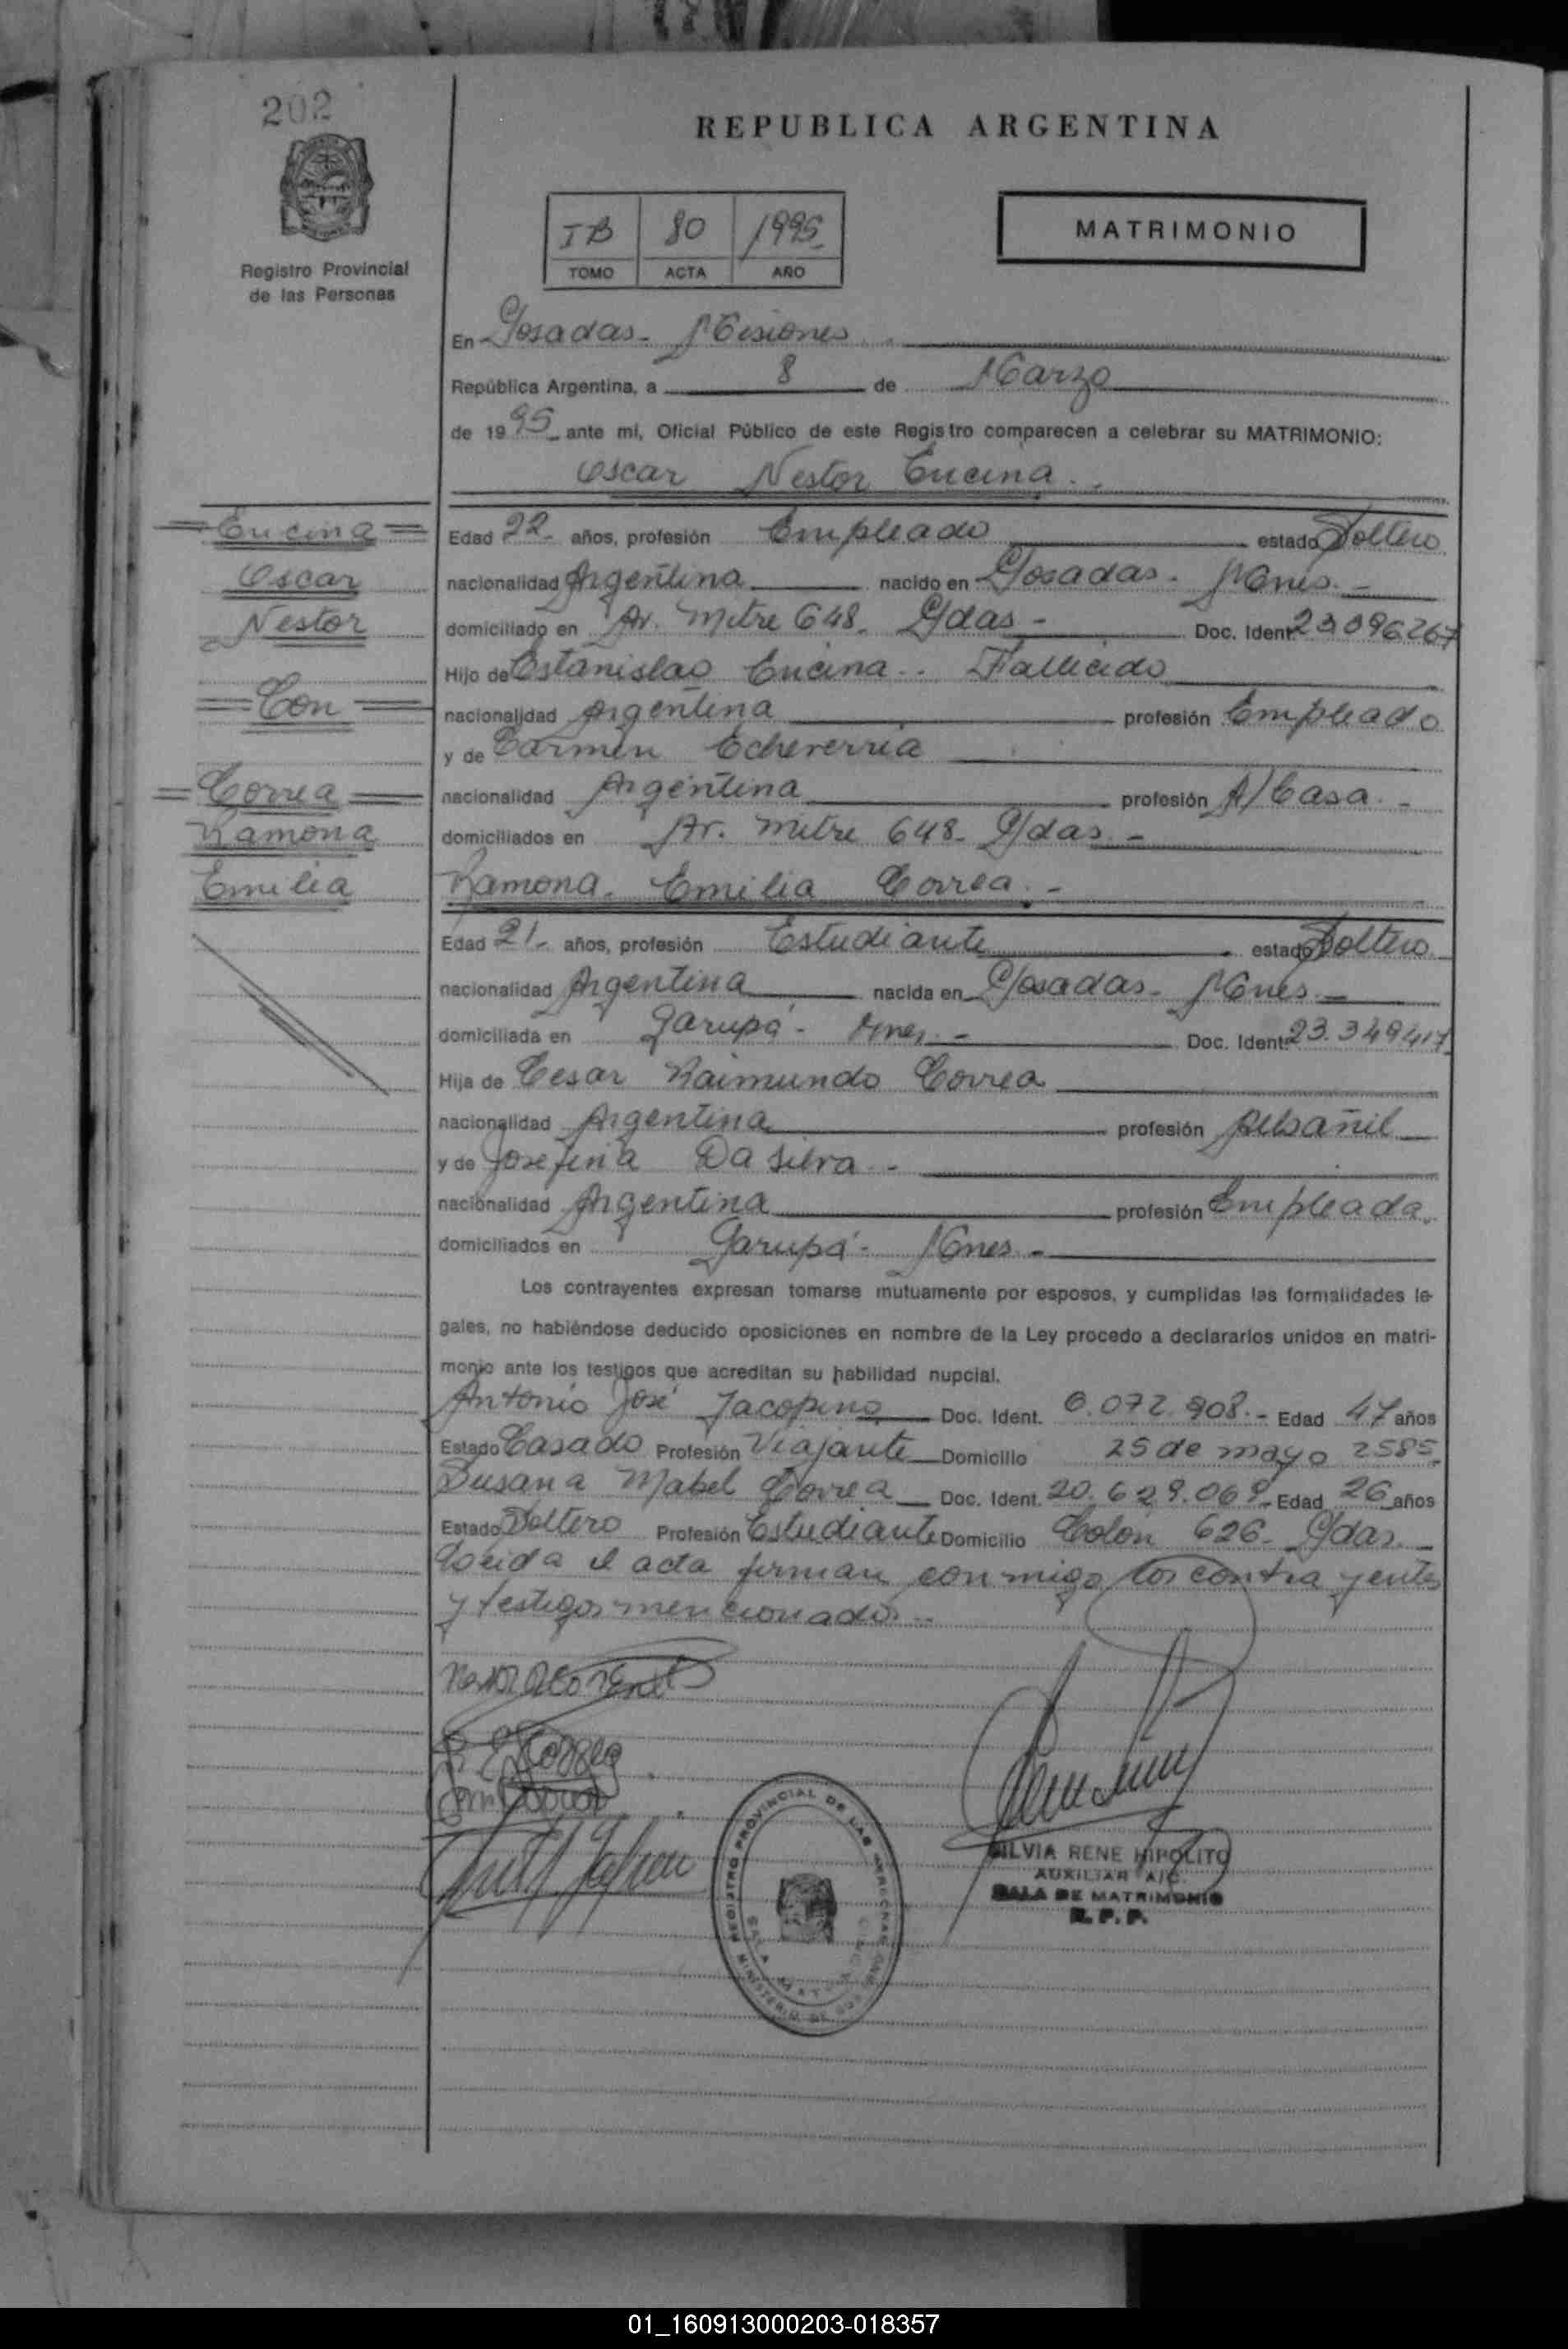 202
REPUBLICA ARGENTINA
Registro Provincial
de las Personas
IB 80 1995
TOMO ACTA AÑO
MATRIMONIO
En Posadas - Misiones
República Argentina, a 8 de Marzo
de 19 95 ante mi, Oficial Público de este Registro comparecen a celebrar su MATRIMONIO:
Oscar Nestor Encina.-
Encina
Oscar
Nestor
Con
Correa
Ramona
Emilia
Edad 22- años, profesión Empleado estado Soltero
nacionalidad Argentina nacido en Posadas - Mnes. -
domiciliado en Av. Mitre 648- Pdas - Doc. Ident. 23.096.267
Hijo de Estanislao Encina - . Fallecido
nacionalidad Argentina profesión Empleado
y de Carmen Echeverria
nacionalidad Argentina profesión A/ Casa. -
domiciliados en Av. Mitre 648- Pdas. -
Ramona. Emilia Correa. -
Edad 21- años, profesión Estudiante estado Soltero.
nacionalidad Argentina nacida en Posadas - Mnes. -
domiciliada en Garupá - Mnes. - Doc. Ident. 23.349417
Hija de Cesar Raimundo Correa
nacionalidad Argentina profesión Albañil
y de Josefina Da Silva. -
nacionalidad Argentina profesión Empleada.
domiciliados en Garupá - Mnes. -
Los contrayentes expresan tomarse mutuamente por esposos, y cumplidas las formalidades le-
gales, no habiéndose deducido oposiciones en nombre de la Ley procedo a declararlos unidos en matri-
monio ante los testigos que acreditan su habilidad nupcial.
Antonio José Jacopino Doc. Ident. 6.072.908.- Edad 47 años
Estado Casado Profesión Viajante Domicilio 25 de mayo 2585
Susana Mabel Correa Doc. Ident. 20.629.069- Edad 26 años
Estado Soltero Profesión Estudiante Domicilio Colón 626- Pdas. -
Leida el acta firman conmigo los contrayentes
y testigos mencionados. -
R E Correa
SILVIA RENE HIPOLITO
AUXILIAR A/C.
SALA DE MATRIMONIO
R. P. P.
REGISTRO PROVINCIAL DE LAS PERSONAS
MINISTERIO DE
SALA MATRIMONIO
01_160913000203-018357